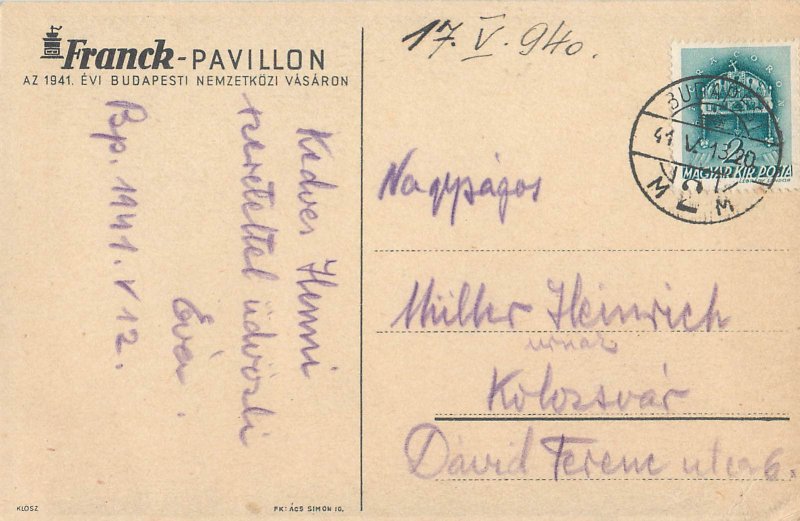 Franck-PAVILLON
AZ 1941. ÉVI BUDAPESTI NEMZETKÖZI VÁSÁRON
17. V. 940.
Kedves Henni
szeretettel üdvözli
Éva.
Bp. 1941. V 12.
SACRA CORONA
2
MAGYAR KIR. POSTA
BUDAPEST
41 V. 13. 20
M 2 M
Nagyságos
Müller Heinrich
urnak
Kolozsvár
Dávid Ferenc utca 6.
KLÓSZ
FK: ÁCS SIMON IG.